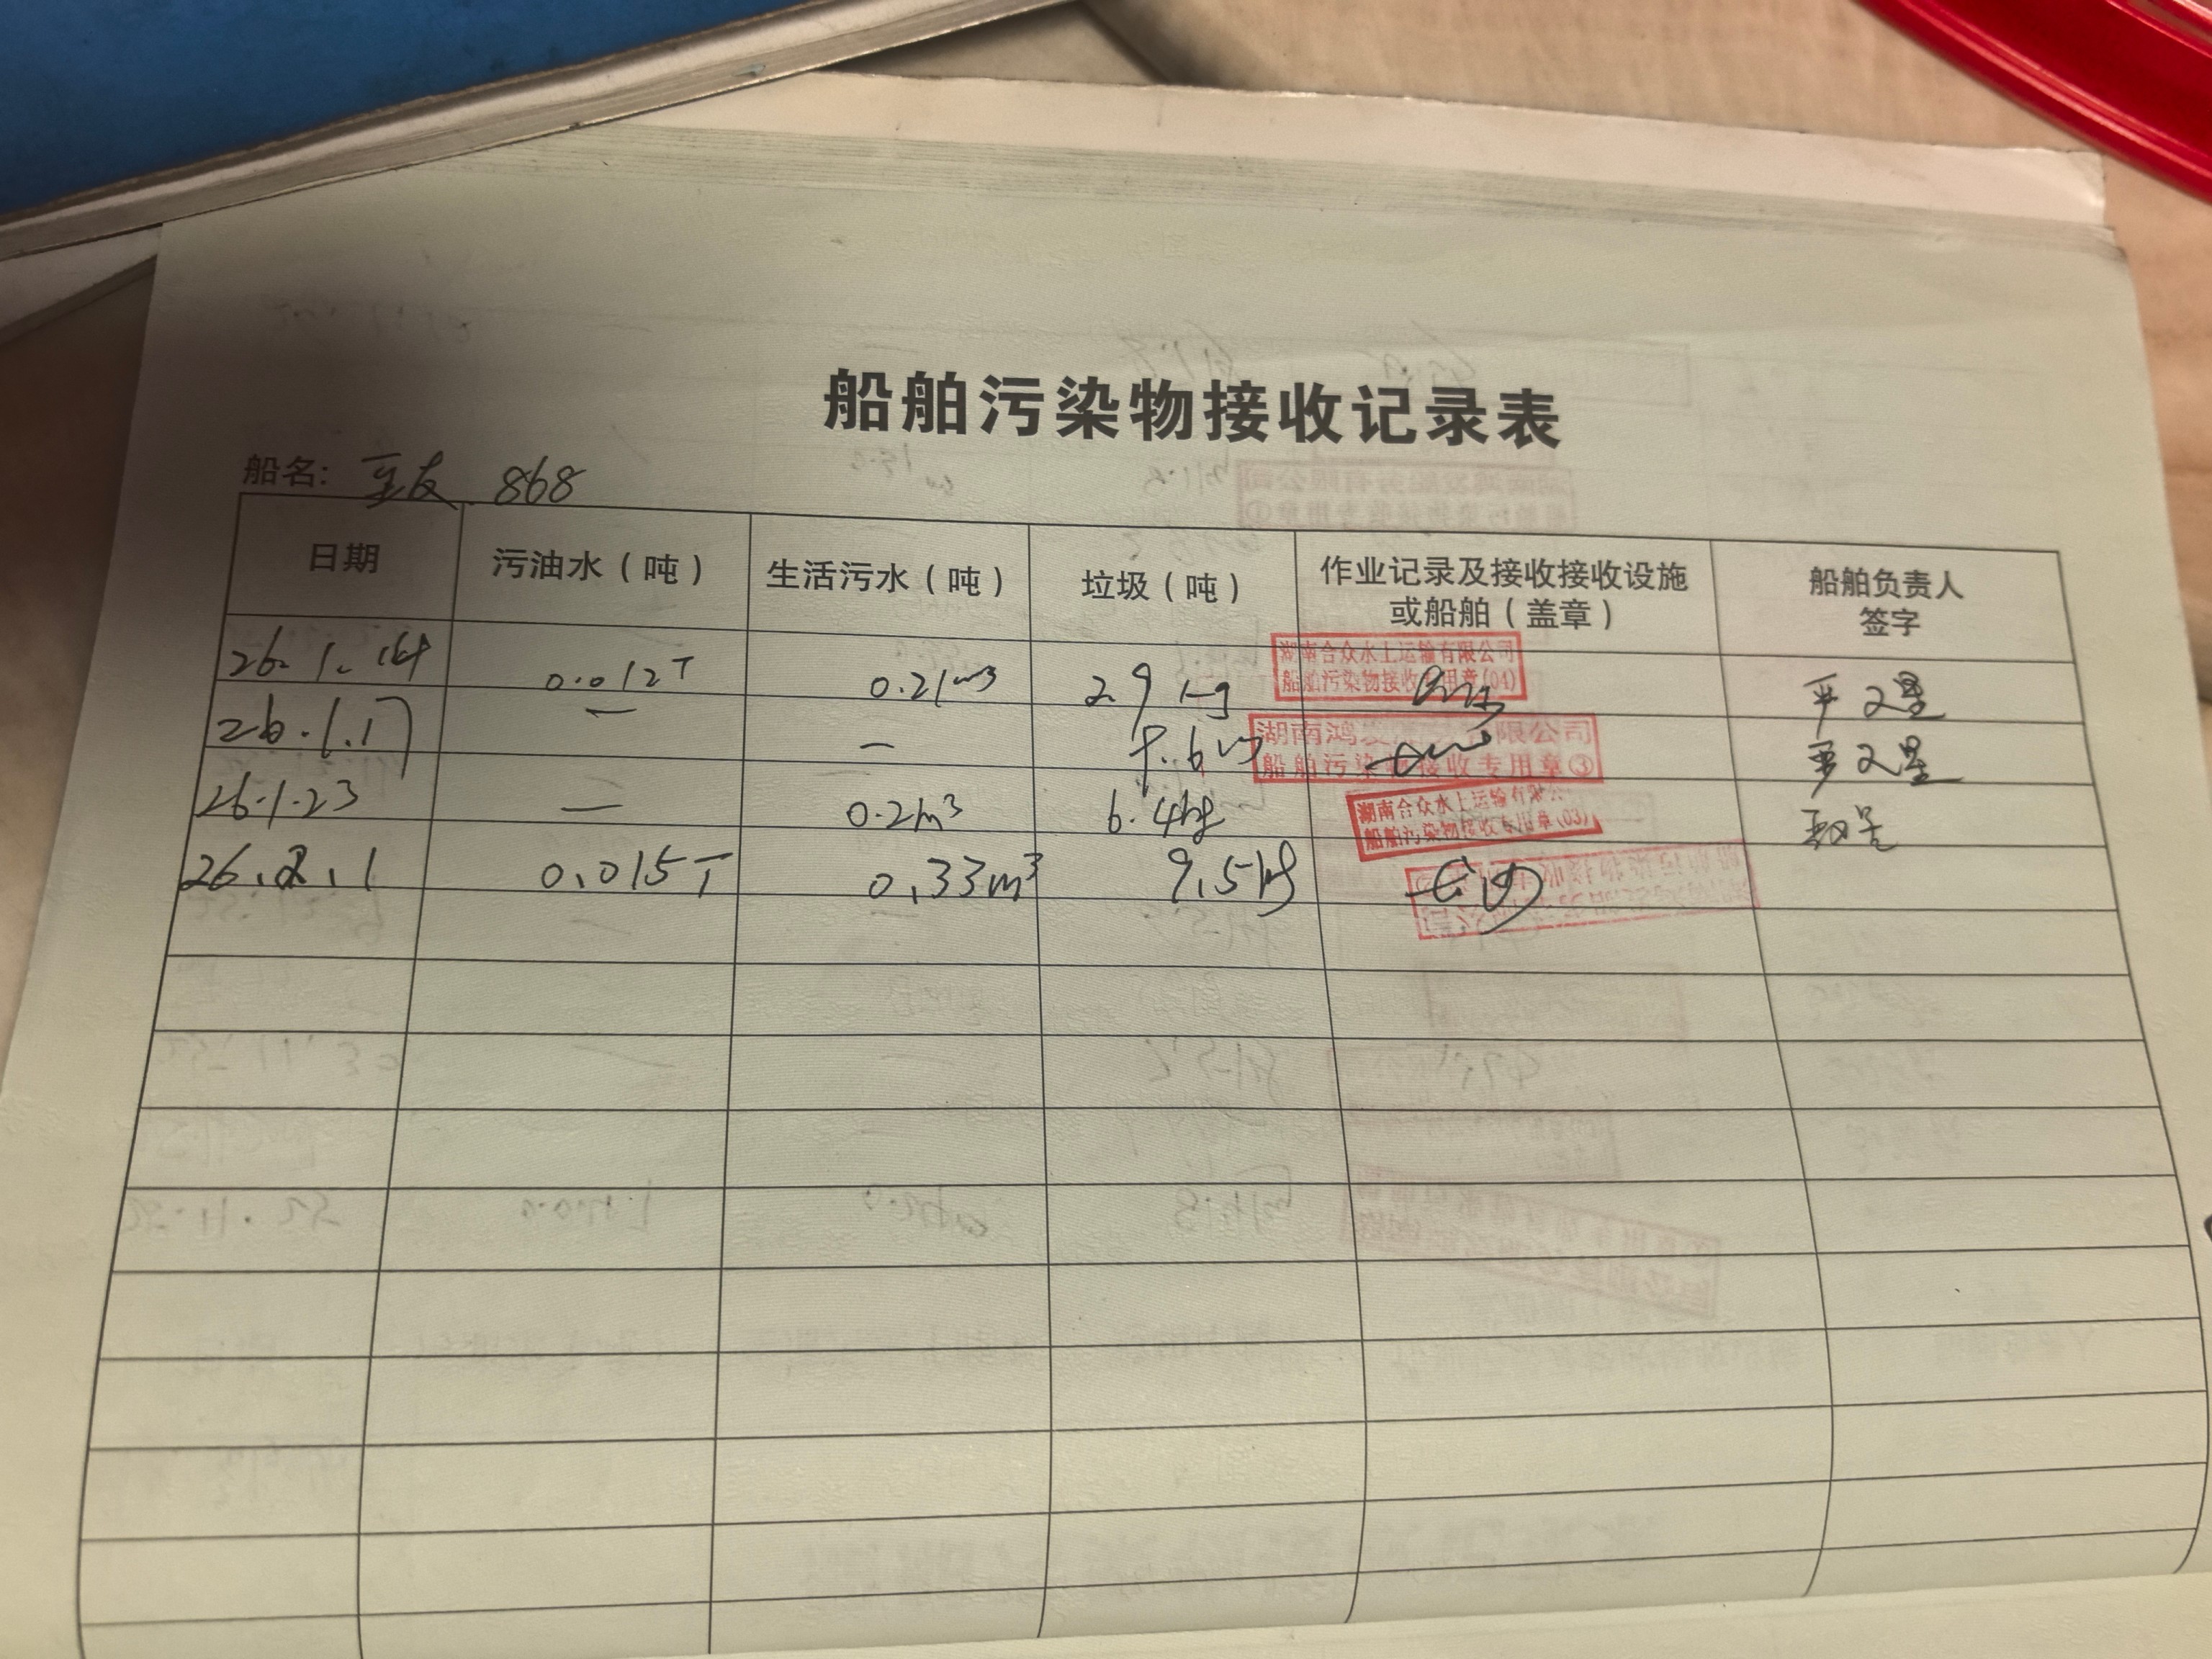 船舶污染物接收记录表
船名: 868
日期 污油水(吨) 生活污水(吨) 垃圾(吨) 作业记录及接收接收设施或船舶(盖章) 船舶负责人签字
26.1.14 0.012T 0.21m3 2.9kg 湖南合众水上运输有限公司
船舶污染物接收专用章(04)
26.1.17 — — 8.6 湖南鸿 有限公司
船舶污染物接收专用章③
26.1.23 — 0.2m³ 6.4kg 湖南合众水上运输有限公
船舶污染物接收专用章(03)
26.2.1 0.015T 0.33m³ 9.5kg